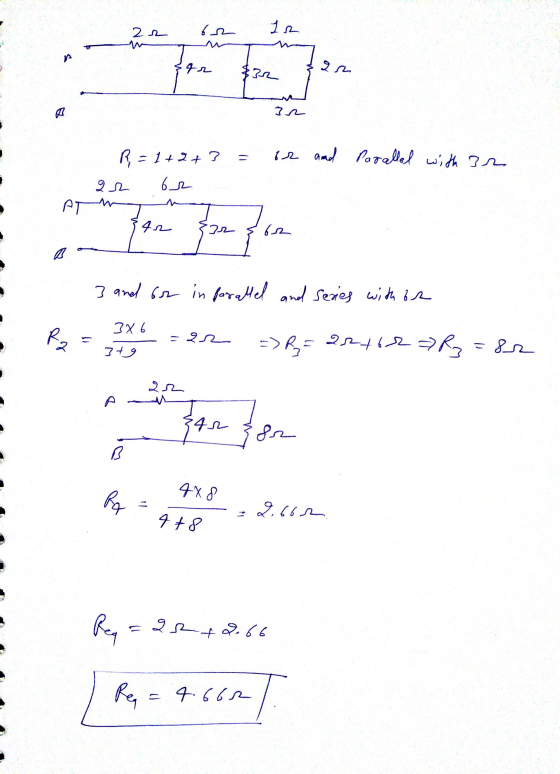 2Ω 6Ω 1Ω
A
4Ω 3Ω 2Ω
B
3Ω
R₁ = 1+2+3 = 6Ω and Parallel with 3Ω
2Ω 6Ω
A
4Ω 3Ω 6Ω
B
3 and 6Ω in parallel and series with 6Ω
R₂ = 3×6 / 3+9 = 2Ω => R₃ = 2Ω+6Ω => R₃ = 8Ω
2Ω
A
4Ω 8Ω
B
R₄ = 4×8 / 4+8 = 2.66Ω
Req = 2Ω + 2.66
Req = 4.66Ω